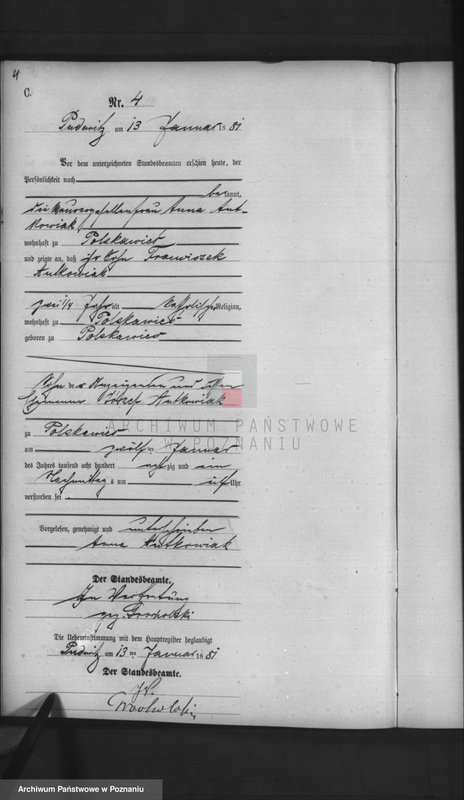 4
C.
Nr. 4
Pudewitz am 13 Januar 1881
Vor dem unterzeichneten Standesbeamten erschien heute, der
Persönlichkeit nach
bekannt,
die Maurergesellenfrau Anna Ant-
kowiak
wohnhaft zu Polskawies
und zeigte an, daß ihr Sohn Franciszek
Antkowiak
zwei 1/4 Jahr alt katholischer Religion,
wohnhaft zu Polskawies
geboren zu Polskawies
Sohn der Anzeigenden und dessen
Ehemannes Józef Antkowiak
ARCHIWUM PAŃSTWOWE
W POZNANIU
zu Polskawies
am zwölften Januar
des Jahres tausend acht hundert achtzig und ein
Nachmittags um Uhr
verstorben sei
Vorgelesen, genehmigt und unterschrieben
Anna Antkowiak
Der Standesbeamte.
In Vertretung
gez. Trocholski
Die Uebereinstimmung mit dem Hauptregister beglaubigt
Pudewitz am 13 ten Januar 1881
Der Standesbeamte.
Archiwum Państwowe w Poznaniu